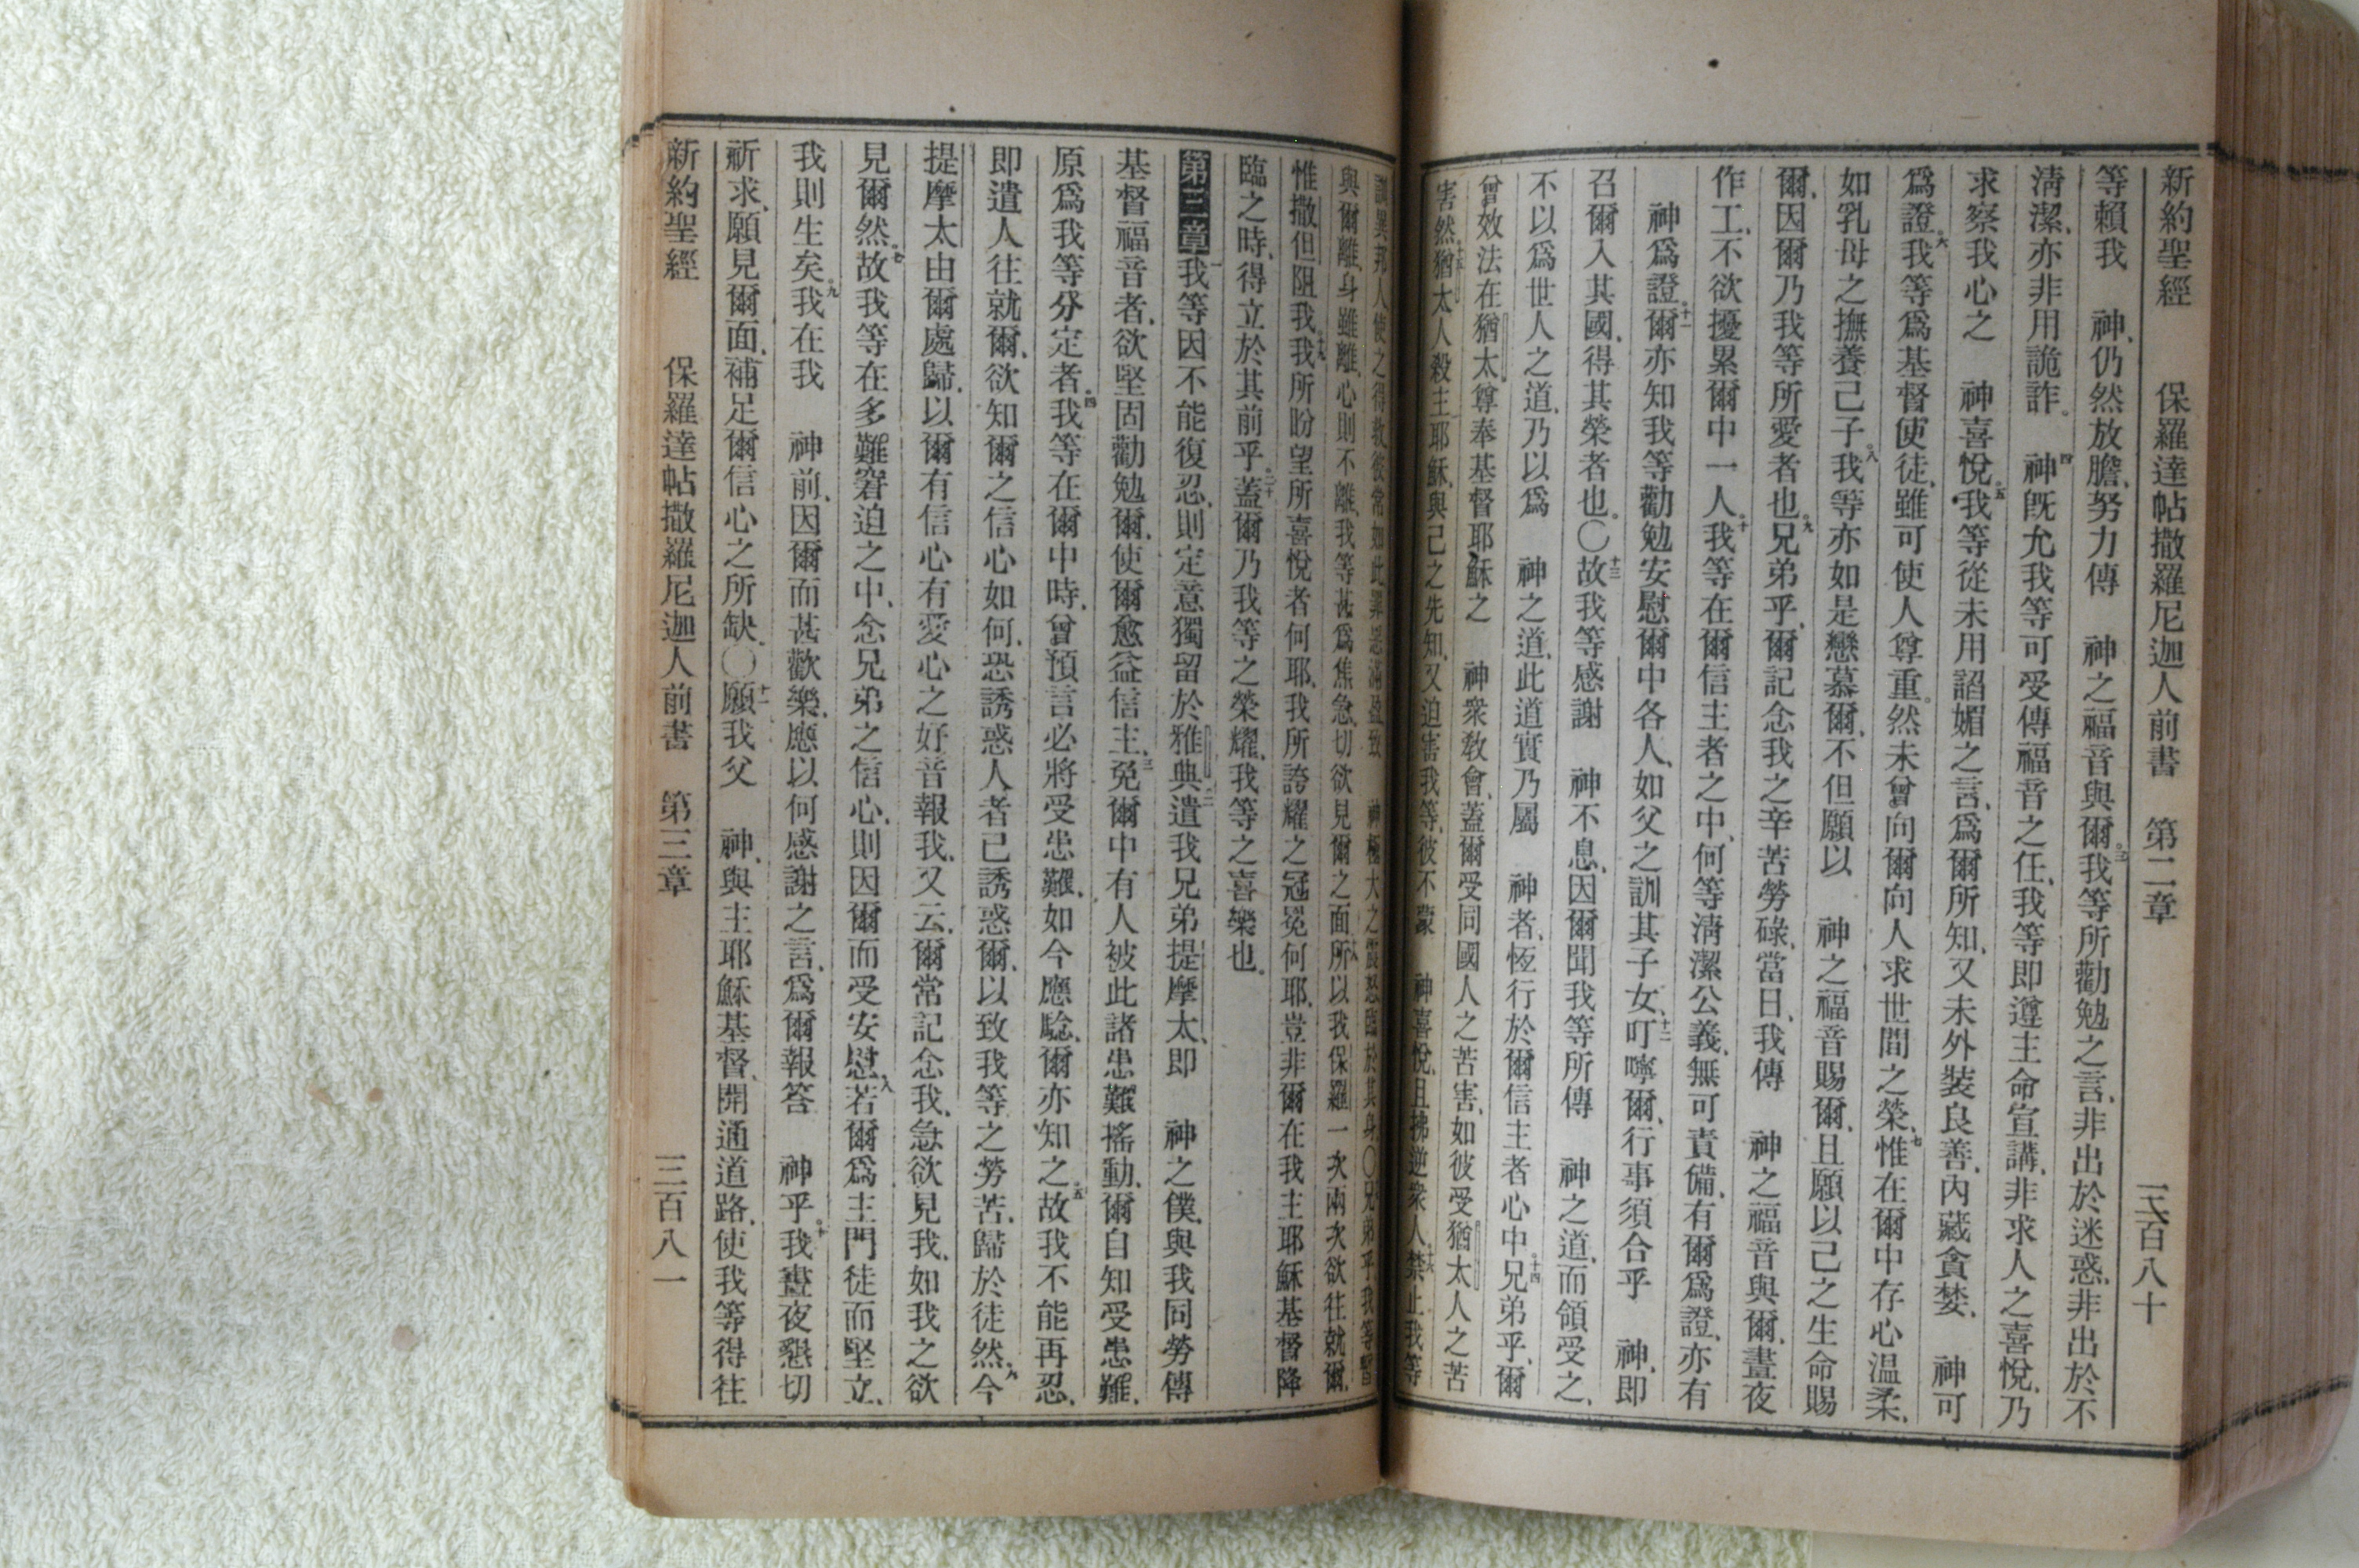 新約聖經 保羅達帖撒羅尼迦人前書 第二章 三百八十
等賴我 神、仍然放膽、努力傳 神之福音與爾。三我等所勸勉之言、非出於迷惑、非出於不
淸潔、亦非用詭詐。四神旣允我等可受傳福音之任、我等卽遵主命宣講、非求人之喜悅、乃
求察我心之 神喜悅。五我等從未用諂媚之言、爲爾所知、又未外裝良善、內藏貪婪、 神可
爲證。六我等爲基督使徒、雖可使人尊重。然未曾向爾向人求世間之榮、七惟在爾中存心温柔、
如乳母之撫養己子、八我等亦如是戀慕爾、不但願以 神之福音賜爾、且願以己之生命賜
爾、因爾乃我等所愛者也。九兄弟乎、爾記念我之辛苦勞碌、當日、我傳 神之福音與爾、晝夜
作工、不欲擾累爾中一人。十我等在爾信主者之中、何等淸潔公義、無可責備、有爾爲證、亦有
神爲證。十一爾亦知我等勸勉安慰爾中各人、如父之訓其子女、十二叮嚀爾、行事須合乎 神、卽
召爾入其國、得其榮者也。〇十三故我等感謝 神不息、因爾聞我等所傳 神之道、而領受之、
不以爲世人之道、乃以爲 神之道、此道實乃屬 神者、恆行於爾信主者心中。十四兄弟乎、爾
曾效法在猶太尊奉基督耶穌之 神衆敎會、蓋爾受同國人之苦害、如彼受猶太人之苦
害然。十五猶太人殺主耶穌、與己之先知、又迫害我等、彼不蒙 神喜悅、且拂逆衆人、十六禁止我等
異邦人使之得救、彼常如此罪惡滿盈、致 神極大之震怒臨於其身。〇兄弟乎、我等暫
與爾離、身雖離、心則不離、我等甚爲焦急、切欲見爾之面、所以我保羅一次兩次欲往就爾、
惟撒但阻我。十九我所盼望所喜悅者何耶、我所誇耀之冠冕何耶、豈非爾在我主耶穌基督降
臨之時、得立於其前乎。二十蓋爾乃我等之榮耀、我等之喜樂也。
第三章 一我等因不能復忍、則定意獨留於雅典、二遣我兄弟提摩太、卽 神之僕、與我同勞傳
基督福音者、欲堅固勸勉爾、使爾愈益信主、三免爾中有人被此諸患難搖動、爾自知受患難、
原爲我等分定者。四我等在爾中時、曾預言必將受患難、如今應驗、爾亦知之。五故我不能再忍、
卽遣人往就爾、欲知爾之信心如何、恐誘惑人者已誘惑爾、以致我等之勞苦、歸於徒然、六今
提摩太由爾處歸、以爾有信心有愛心之好音報我、又云、爾常記念我、急欲見我、如我之欲
見爾然。七故我等在多難窘迫之中、念兄弟之信心、則因爾而受安慰、八若爾爲主門徒而堅立、
我則生矣。九我在我 神前、因爾而甚歡樂、應以何感謝之言、爲爾報答 神乎。十我晝夜懇切
祈求、願見爾面、補足爾信心之所缺。〇十一願我父 神、與主耶穌基督、開通道路、使我等得往
新約聖經 保羅達帖撒羅尼迦人前書 第三章 三百八一